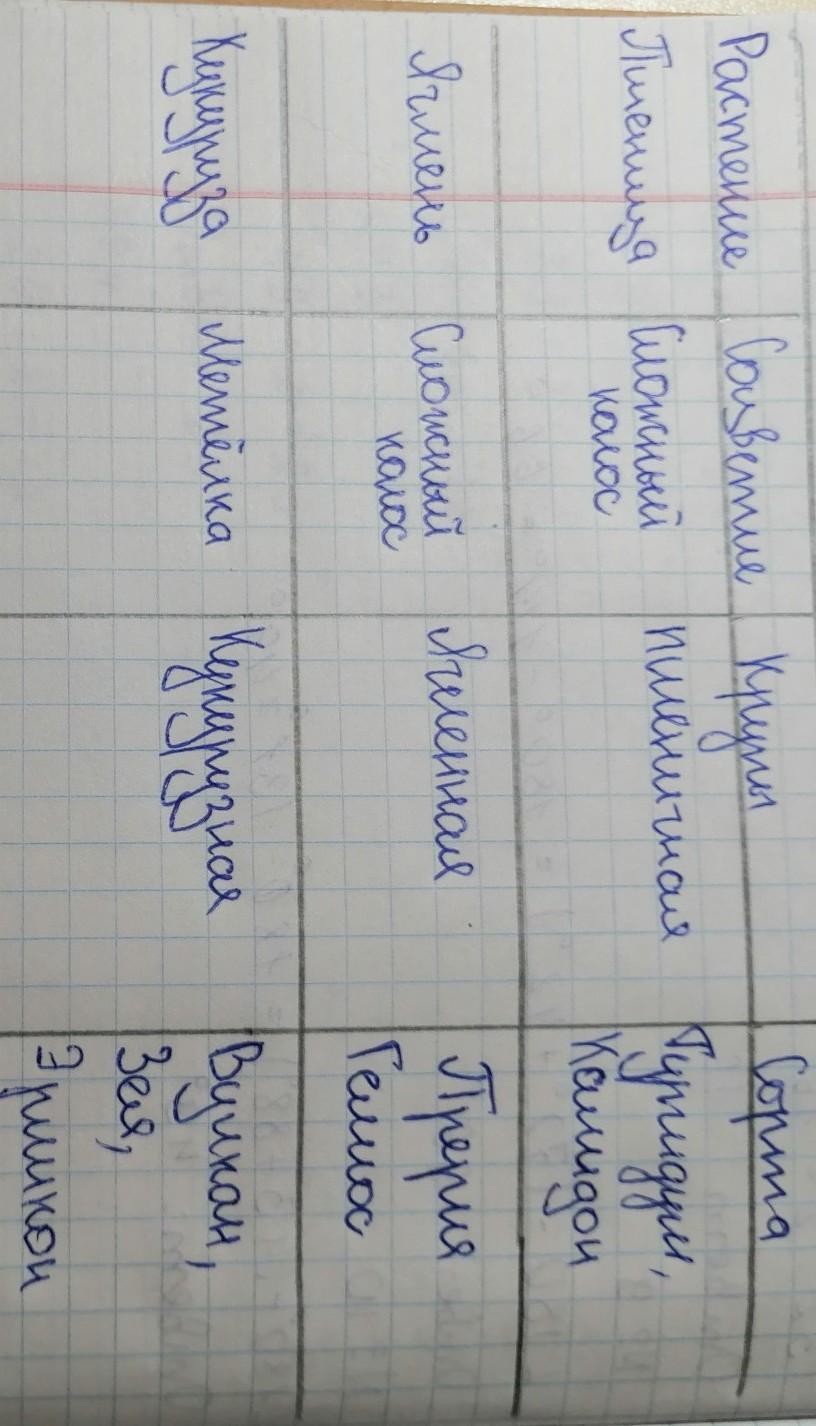 Растение Соцветие Крупы Сорта
Пшеница Сложный колос Пшеничная Туридум, Калидон
Ячмень Сложный колос Ячменная Прерия Гелиос
Кукуруза Метёлка Кукурузная Вулкан, Зея, Эрликон